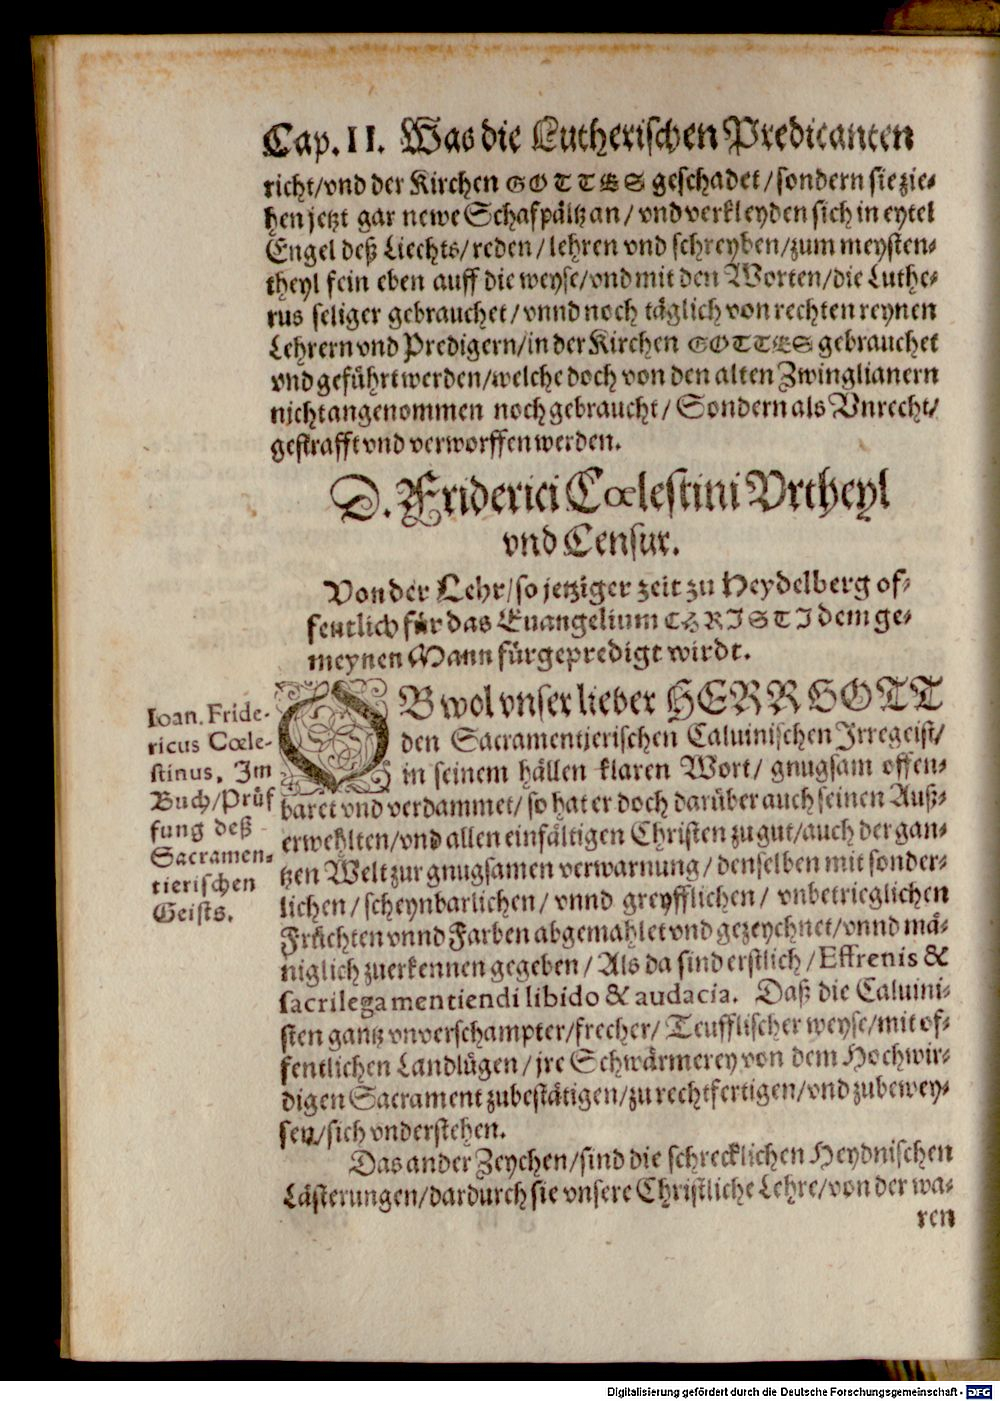 Cap. II. Was die Lutherischen Predicanten
richt/vnd der Kirchen GOTTES geschadet/sondern sie zie-
hen jetzt gar newe Schafpältz an/ vnd verkleyden sich in eytel
Engel deß Liechts/reden/lehren vnd schreyben/zum meysten-
theyl fein eben auff die weyse/vnd mit den Worten/die Luthe-
rus seliger gebrauchet/vnnd noch täglich von rechten reynen
Lehrern vnd Predigern/in der Kirchen GOTTES gebrauchet
vnd geführt werden/welche doch von den alten Zwinglianern
nicht angenommen noch gebraucht/ Sondern als Vnrecht/
gestrafft vnd verworffen werden.
D. Friderici Cœlestini Vrtheyl
vnd Censur.
Von der Lehr/so jetziger zeit zu Heydelberg of-
fentlich für das Euangelium CHRISTI dem ge-
meynen Mann fürgepredigt wirdt.
Ioan. Fride-
ricus Cœle-
stinus, Im
Buch/Prüf
fung deß
Sacramen-
tierischen
Geists.
OB wol vnser lieber HERR GOTT
den Sacramentierischen Caluinischen Irregeist/
in seinem hällen klaren Wort/ gnugsam offen-
baret vnd verdammet/ so hat er doch darüber auch seinen Auß-
erwehlten/vnd allen einfältigen Christen zu gut/auch der gan-
tzen Welt zur gnugsamen verwarnung/denselben mit sonder-
lichen/scheynbarlichen/ vnnd greyfflichen/ vnbetrieglichen
Früchten vnnd Farben abgemahlet vnd gezeychnet/vnnd mä-
niglich zuerkennen gegeben/Als da sind erstlich/Effrenis &
sacrilega mentiendi libido & audacia. Daß die Caluini-
sten gantz vnverschampter/frecher/ Teufflischer weyse/mit of-
fentlichen Landlügen/jre Schwärmerey von dem Hochwir-
digen Sacrament zubestätigen/zu rechtfertigen/vnd zubewey-
sen/sich vnderstehen.
Das ander Zeychen/sind die schrecklichen Heydnischen
Lästerungen/dardurch sie vnsere Christliche Lehre/von der wa-
ren
Digitalisierung gefördert durch die Deutsche Forschungsgemeinschaft - DFG